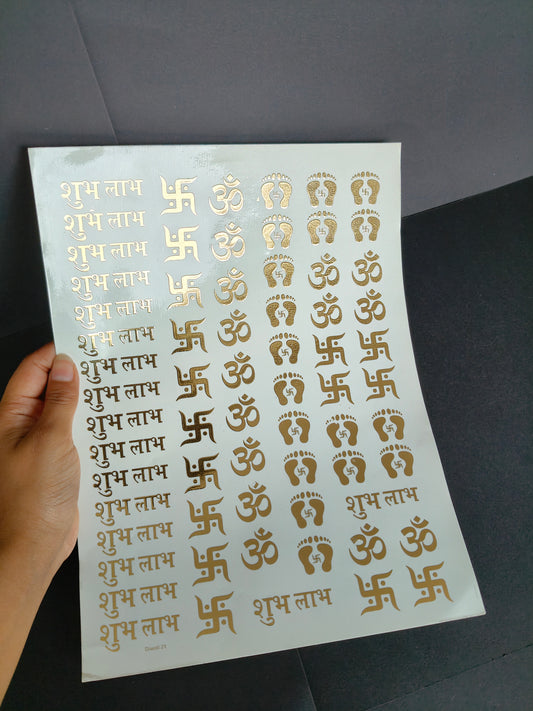 शुभ लाभ ॐ
शुभ लाभ
शुभ लाभ ॐ
शुभ लाभ ॐ ॐ ॐ
शुभ लाभ ॐ ॐ
शुभ लाभ ॐ
शुभ लाभ ॐ
शुभ लाभ
शुभ लाभ ॐ
शुभ लाभ ॐ
शुभ लाभ
शुभ लाभ ॐ शुभ लाभ
शुभ लाभ ॐ ॐ ॐ
शुभ लाभ
शुभ लाभ शुभ लाभ
शुभ लाभ
Diwali 21